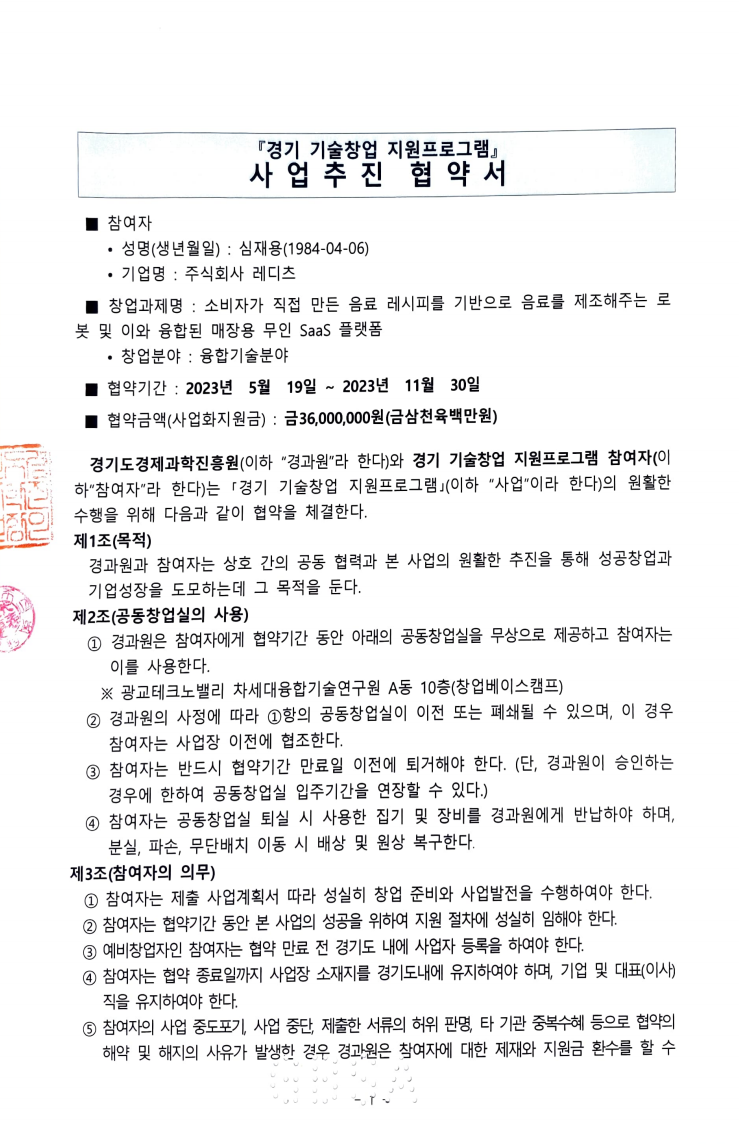 『경기 기술창업 지원프로그램』
사 업 추 진 협 약 서
■ 참여자
• 성명(생년월일) : 심재용(1984-04-06)
• 기업명 : 주식회사 레디츠
■ 창업과제명 : 소비자가 직접 만든 음료 레시피를 기반으로 음료를 제조해주는 로
봇 및 이와 융합된 매장용 무인 SaaS 플랫폼
• 창업분야 : 융합기술분야
■ 협약기간 : 2023년 5월 19일 ~ 2023년 11월 30일
■ 협약금액(사업화지원금) : 금36,000,000원(금삼천육백만원)
경기도경제과학진흥원(이하 "경과원"라 한다)와 경기 기술창업 지원프로그램 참여자(이
하"참여자"라 한다)는 「경기 기술창업 지원프로그램」(이하 "사업"이라 한다)의 원활한
수행을 위해 다음과 같이 협약을 체결한다.
제1조(목적)
경과원과 참여자는 상호 간의 공동 협력과 본 사업의 원활한 추진을 통해 성공창업과
기업성장을 도모하는데 그 목적을 둔다.
제2조(공동창업실의 사용)
① 경과원은 참여자에게 협약기간 동안 아래의 공동창업실을 무상으로 제공하고 참여자는
이를 사용한다.
※ 광교테크노밸리 차세대융합기술연구원 A동 10층(창업베이스캠프)
② 경과원의 사정에 따라 ①항의 공동창업실이 이전 또는 폐쇄될 수 있으며, 이 경우
참여자는 사업장 이전에 협조한다.
③ 참여자는 반드시 협약기간 만료일 이전에 퇴거해야 한다. (단, 경과원이 승인하는
경우에 한하여 공동창업실 입주기간을 연장할 수 있다.)
④ 참여자는 공동창업실 퇴실 시 사용한 집기 및 장비를 경과원에게 반납하야 하며,
분실, 파손, 무단배치 이동 시 배상 및 원상 복구한다.
제3조(참여자의 의무)
① 참여자는 제출 사업계획서 따라 성실히 창업 준비와 사업발전을 수행하여야 한다.
② 참여자는 협약기간 동안 본 사업의 성공을 위하여 지원 절차에 성실히 임해야 한다.
③ 예비창업자인 참여자는 협약 만료 전 경기도 내에 사업자 등록을 하여야 한다.
④ 참여자는 협약 종료일까지 사업장 소재지를 경기도내에 유지하여야 하며, 기업 및 대표(이사)
직을 유지하여야 한다.
⑤ 참여자의 사업 중도포기, 사업 중단, 제출한 서류의 허위 판명, 타 기관 중복수혜 등으로 협약의
해약 및 해지의 사유가 발생한 경우 경과원은 참여자에 대한 제재와 지원금 환수를 할 수
- 1 -